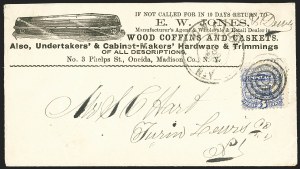 IF NOT CALLED FOR IN 10 DAYS RETURN TO
E. W. JONES,
Manufacturer's Agent & Wholesale & Retail Dealer in
WOOD COFFINS AND CASKETS.
Also, Undertakers' & Cabinet-Makers' Hardware & Trimmings
OF ALL DESCRIPTIONS,
No. 3 Phelps St., Oneida, Madison Co., N. Y.
N.Y.
Turin Lewis Co.
N Y